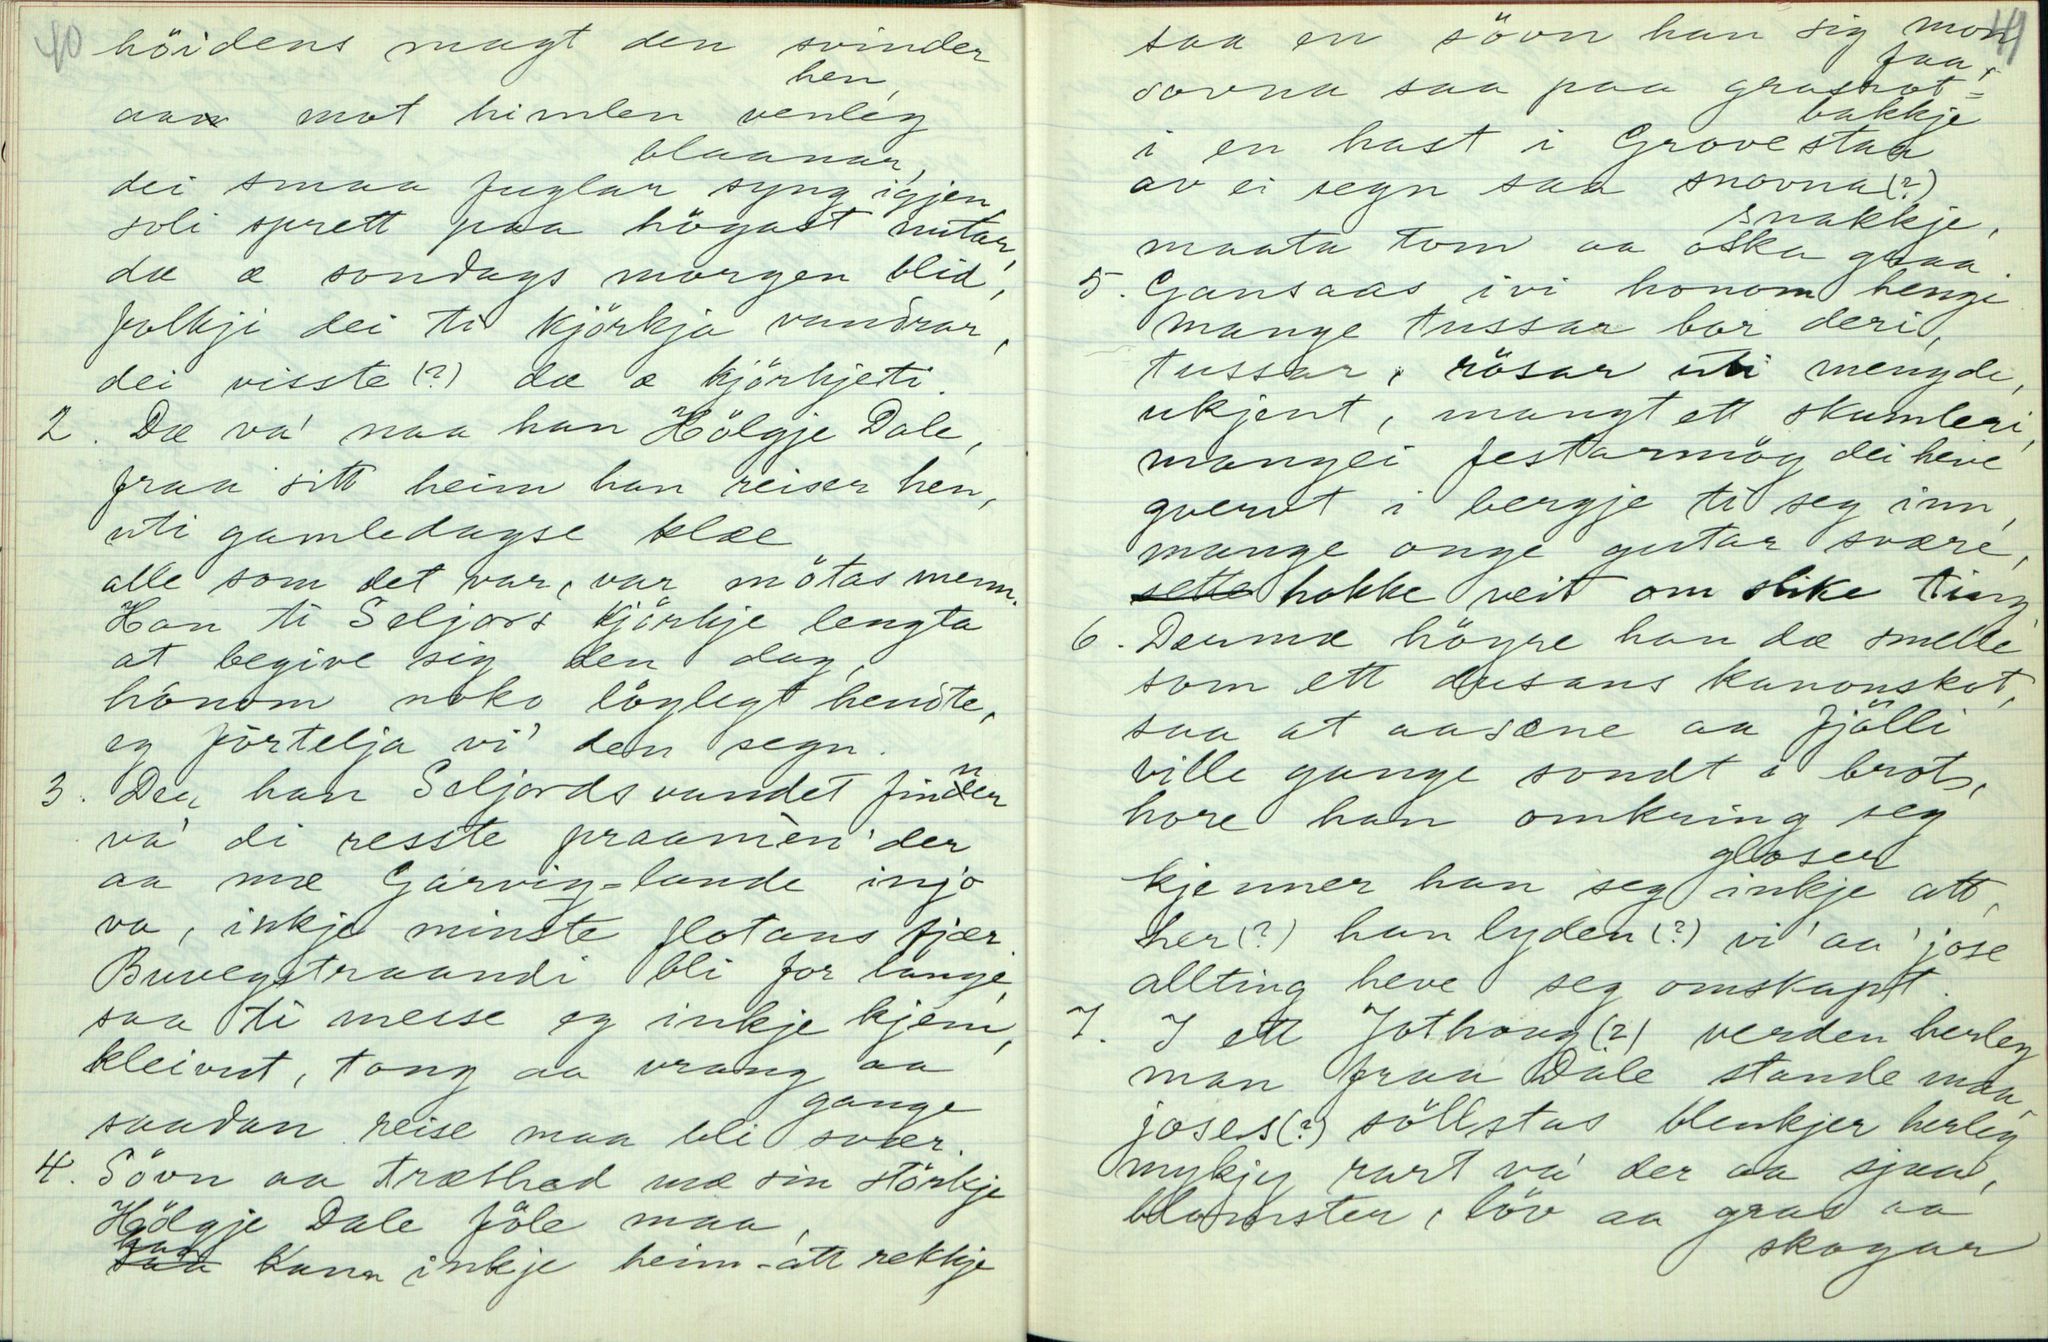 40
höidens magt den svinder
hen,
aa mot himlen venleg
blaanar,
dei smaa fuglar syng igjen
soli sprett paa högast nutar,
dæ æ sondags morgen blid,
folkji dei ti kjörkja vandrar,
dei visste (?) dæ æ kjörkjeti.
2. Dæ va' naa han Hölgje Dale,
fraa sitt heim han reiser hen,
uti gamledagse klæe
alle som det var, var mötas menn.
Han ti Seljors kjörkje lengta
at begive sig den dag,
honom noko löglegt hendte,
eg förtelja vi' den segn.
3. Den han Seljordsvandet finner
va' di resste praamen' der
aa mæ Garvig-lande injo
va, inkje minste flotans fjær.
Buvegstraandi bli for lange,
saa ti messe eg inkje kjem,
kleivut, tong aa vrang aa
gange
saadan reise maa bli svær.
4. Sövn aa træthed mæ sin störkje
Hölgje Dale föle maa,
han kann inkje heim-att rekkje
41
saa en sövn han sig mon
faa.
sovna saa paa grasrot=
bakkje
i en hast i Grovestaa
av ei segn saa snovna (?)
snakkje,
maata tom aa oska graa.
5. Gansaas ivi honom hengi
mange tussar bor deri,
tussar, rösar uti mengde,
ukjent, mangt ett skumleri,
mangei festarmöy dei heve
gvervt i bergje ti seg inn,
mange onge gutar svære,
sette hokke veit om slike ting
6. Dermæ högre han dæ smelle
som ett dusans kanonskot,
saa at aasæne aa fjölli
ville gange sondt i brots,
hore han omkring seg
gloser
kjenner han seg inkje att,
her (?) han lyden (?) vi' aa' jose
allting heve seg omskapt.
7. I ett Jothoug (?) verden herleg
man fraa Dale stande maa,
joses (?) söllstas blenkjer herleg
mykjy rart va' der aa sjaa,
blomster, löv aa gras aa
skogar